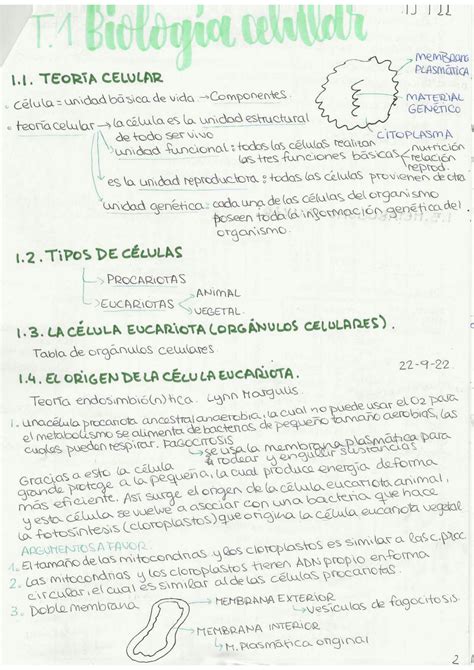 T.1 Biología celular
1.1. TEORÍA CELULAR
• célula = unidad básica de vida → Componentes.
MEMBRANA
PLASMÁTICA
MATERIAL
GENÉTICO
CITOPLASMA
• teoría celular → la célula es la unidad estructural
de todo ser vivo
unidad funcional: todas las células realizan
las tres funciones básicas
nutrición
relación
reprod.
es la unidad reproductora: todas las células provienen de otra
unidad genética: cada una de las células del organismo
poseen toda la información genética del
organismo.
1.2. TIPOS DE CÉLULAS
PROCARIOTAS
EUCARIOTAS
ANIMAL
VEGETAL
1.3. LA CÉLULA EUCARIOTA (ORGÁNULOS CELULARES).
Tabla de orgánulos celulares
1.4. EL ORIGEN DE LA CÉLULA EUCARIOTA.
22-9-22
Teoría endosimbió(n)tica. Lynn Margulis
1. una célula procariota ancestral anaerobia, la cual no puede usar el O2 para
el metabolismo se alimenta de bacterias de pequeño tamaño aerobias, las
cuales pueden respirar. FAGOCITOSIS
→ se usa la membrana plasmática para
rodear y engullir sustancias
Gracias a esto la célula
grande protege a la pequeña, la cual produce energía de forma
más eficiente. Así surge el origen de la célula eucariota animal,
y esta célula se vuelve a asociar con una bacteria que hace
la fotosíntesis (cloroplastos) que origina la célula eucariota vegetal
ARGUMENTOS A FAVOR
1. El tamaño de las mitocondrias y los cloroplastos es similar a las c.proc
2. Las mitocondrias y los cloroplastos tienen ADN propio en forma
circular, el cual es similar al de las células procariotas.
3. Doble membrana
MEMBRANA EXTERIOR
→ vesículas de fagocitosis.
MEMBRANA INTERIOR
→ M. plasmática original
2